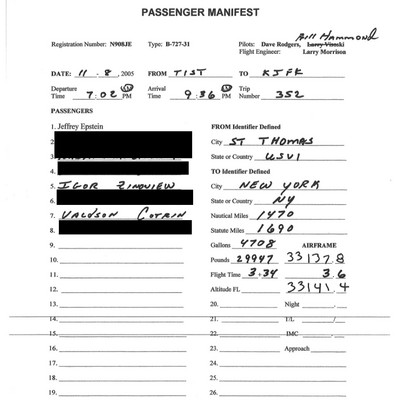 PASSENGER MANIFEST
Bill Hammond
Registration Number: N908JE Type: B-727-31 Pilots: Dave Rodgers, Larry Visoski
Flight Engineer: Larry Morrison
DATE: 11 - 8, 2005 FROM TIST TO KJFK
Departure Time 7:02 PM Arrival Time 9:36 PM Trip Number 352
PASSENGERS
1. Jeffrey Epstein FROM Identifier Defined
2. City ST THOMAS
3. State or Country USVI
4. TO Identifier Defined
5. IGOR ZINOVIEW City NEW YORK
6. State or Country NY
7. VALDSON COTRIN Nautical Miles 1470
8. Statute Miles 1690
9. Gallons 4708 AIRFRAME
10. Pounds 29947 33137.8
11. Flight Time 3:34 3.6
12. Altitude FL 33141.4
13. 20. Night
14. 21. T/L /
15. 22. IMC
16. 23. Approach
18. 25.
19. 26.